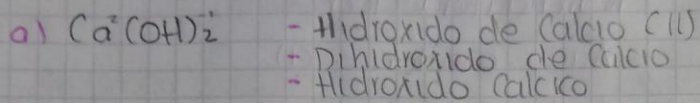 a) Ca²(OH)₂⁻¹ - Hidroxido de Calcio (II)
- Dihidroxido de Calcio
- Hidroxido Calcico